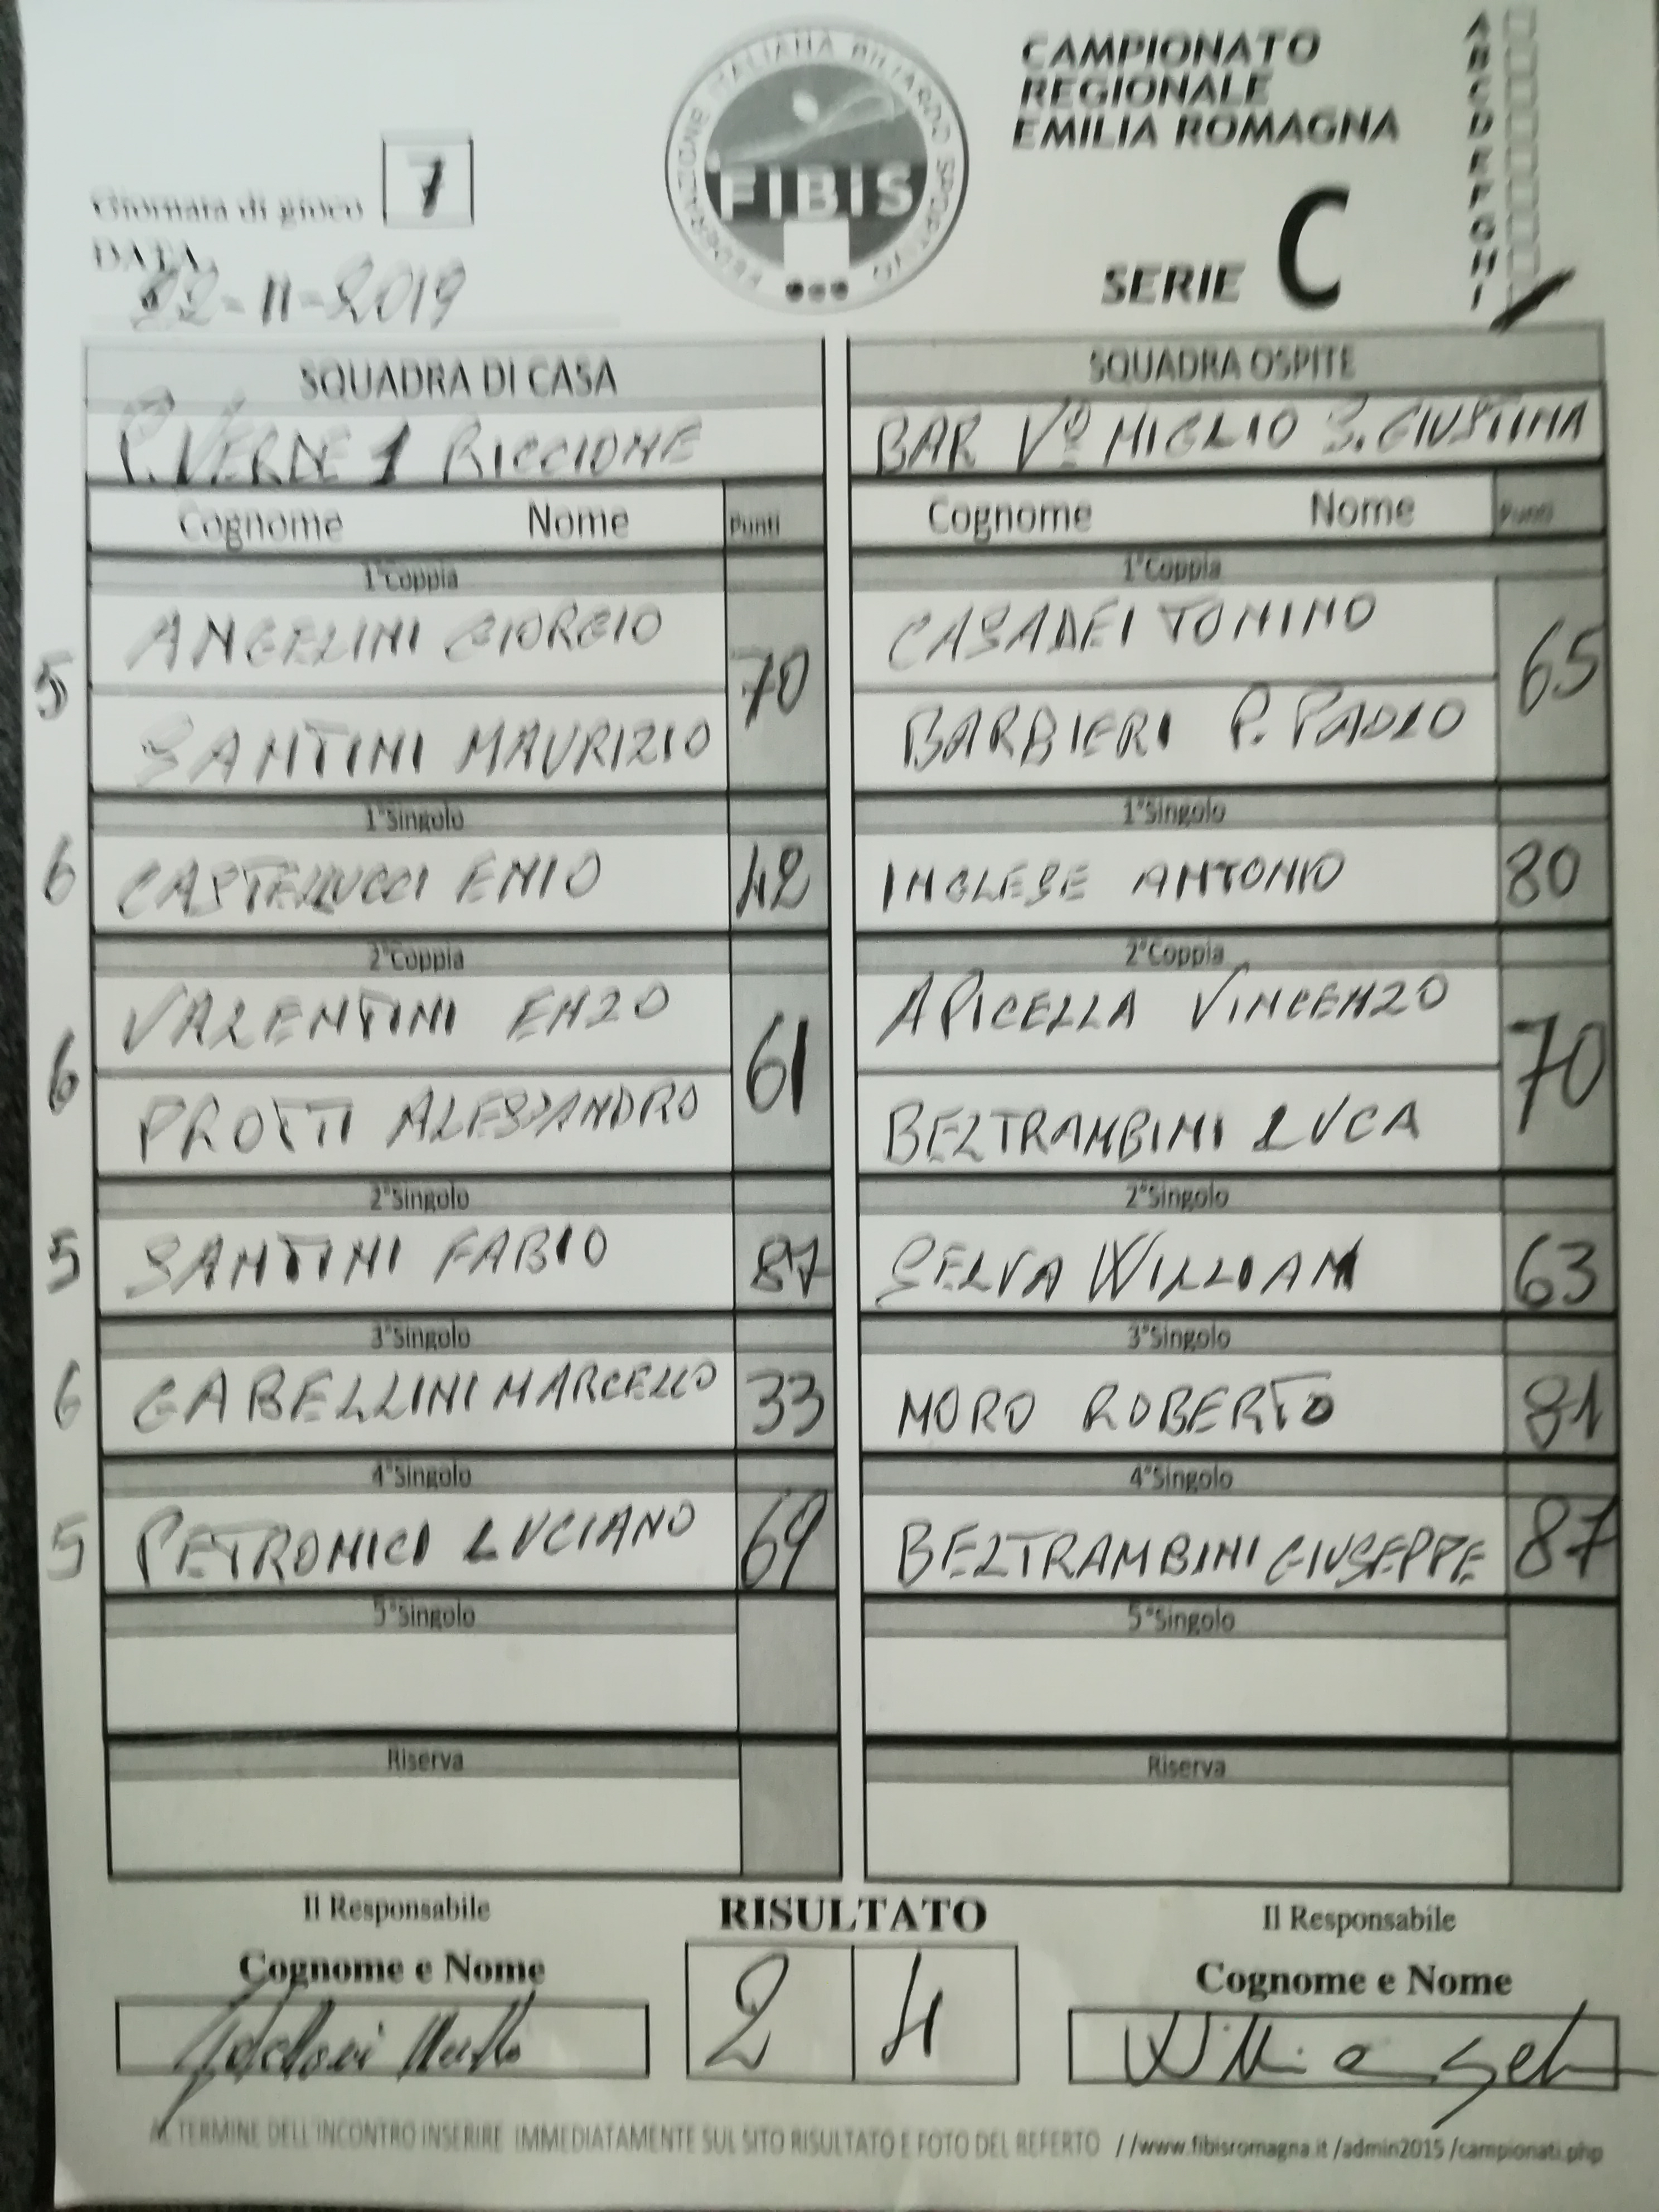 FEDERAZIONE ITALIANA BILIARDO SPORTIVO
FIBIS
CAMPIONATO
REGIONALE
EMILIA ROMAGNA
SERIE C
A
B
C
D
E
F
G
H
I
Giornata di gioco 7
DATA
22-11-2019
SQUADRA DI CASA
P. VERDE 1 RICCIONE
Cognome Nome Punti
1°Coppia
5 ANGELINI GIORGIO 70
SANTINI MAURIZIO
1°Singolo
6 CASTELLUCCI ENIO 42
2°Coppia
6 VALENTINI ENZO 61
PROTTI ALESSANDRO
2°Singolo
5 SANTINI FABIO 87
3°Singolo
6 GABELLINI MARCELLO 33
4°Singolo
5 PETRONICI LUCIANO 69
5°Singolo
Riserva
SQUADRA OSPITE
BAR V° MIGLIO S. GIUSTINA
Cognome Nome Punti
1°Coppia
CASADEI TONINO 65
BARBIERI P. PAOLO
1°Singolo
INGLESE ANTONIO 80
2°Coppia
APICELLA VINCENZO 70
BELTRAMBINI LUCA
2°Singolo
SELVA WILLIAM 63
3°Singolo
MORO ROBERTO 81
4°Singolo
BELTRAMBINI GIUSEPPE 87
5°Singolo
Riserva
Il Responsabile
Cognome e Nome
RISULTATO
2 4
Il Responsabile
Cognome e Nome
AL TERMINE DELL'INCONTRO INSERIRE IMMEDIATAMENTE SUL SITO RISULTATO E FOTO DEL REFERTO //www.fibisromagna.it/admin2015/campionati.php